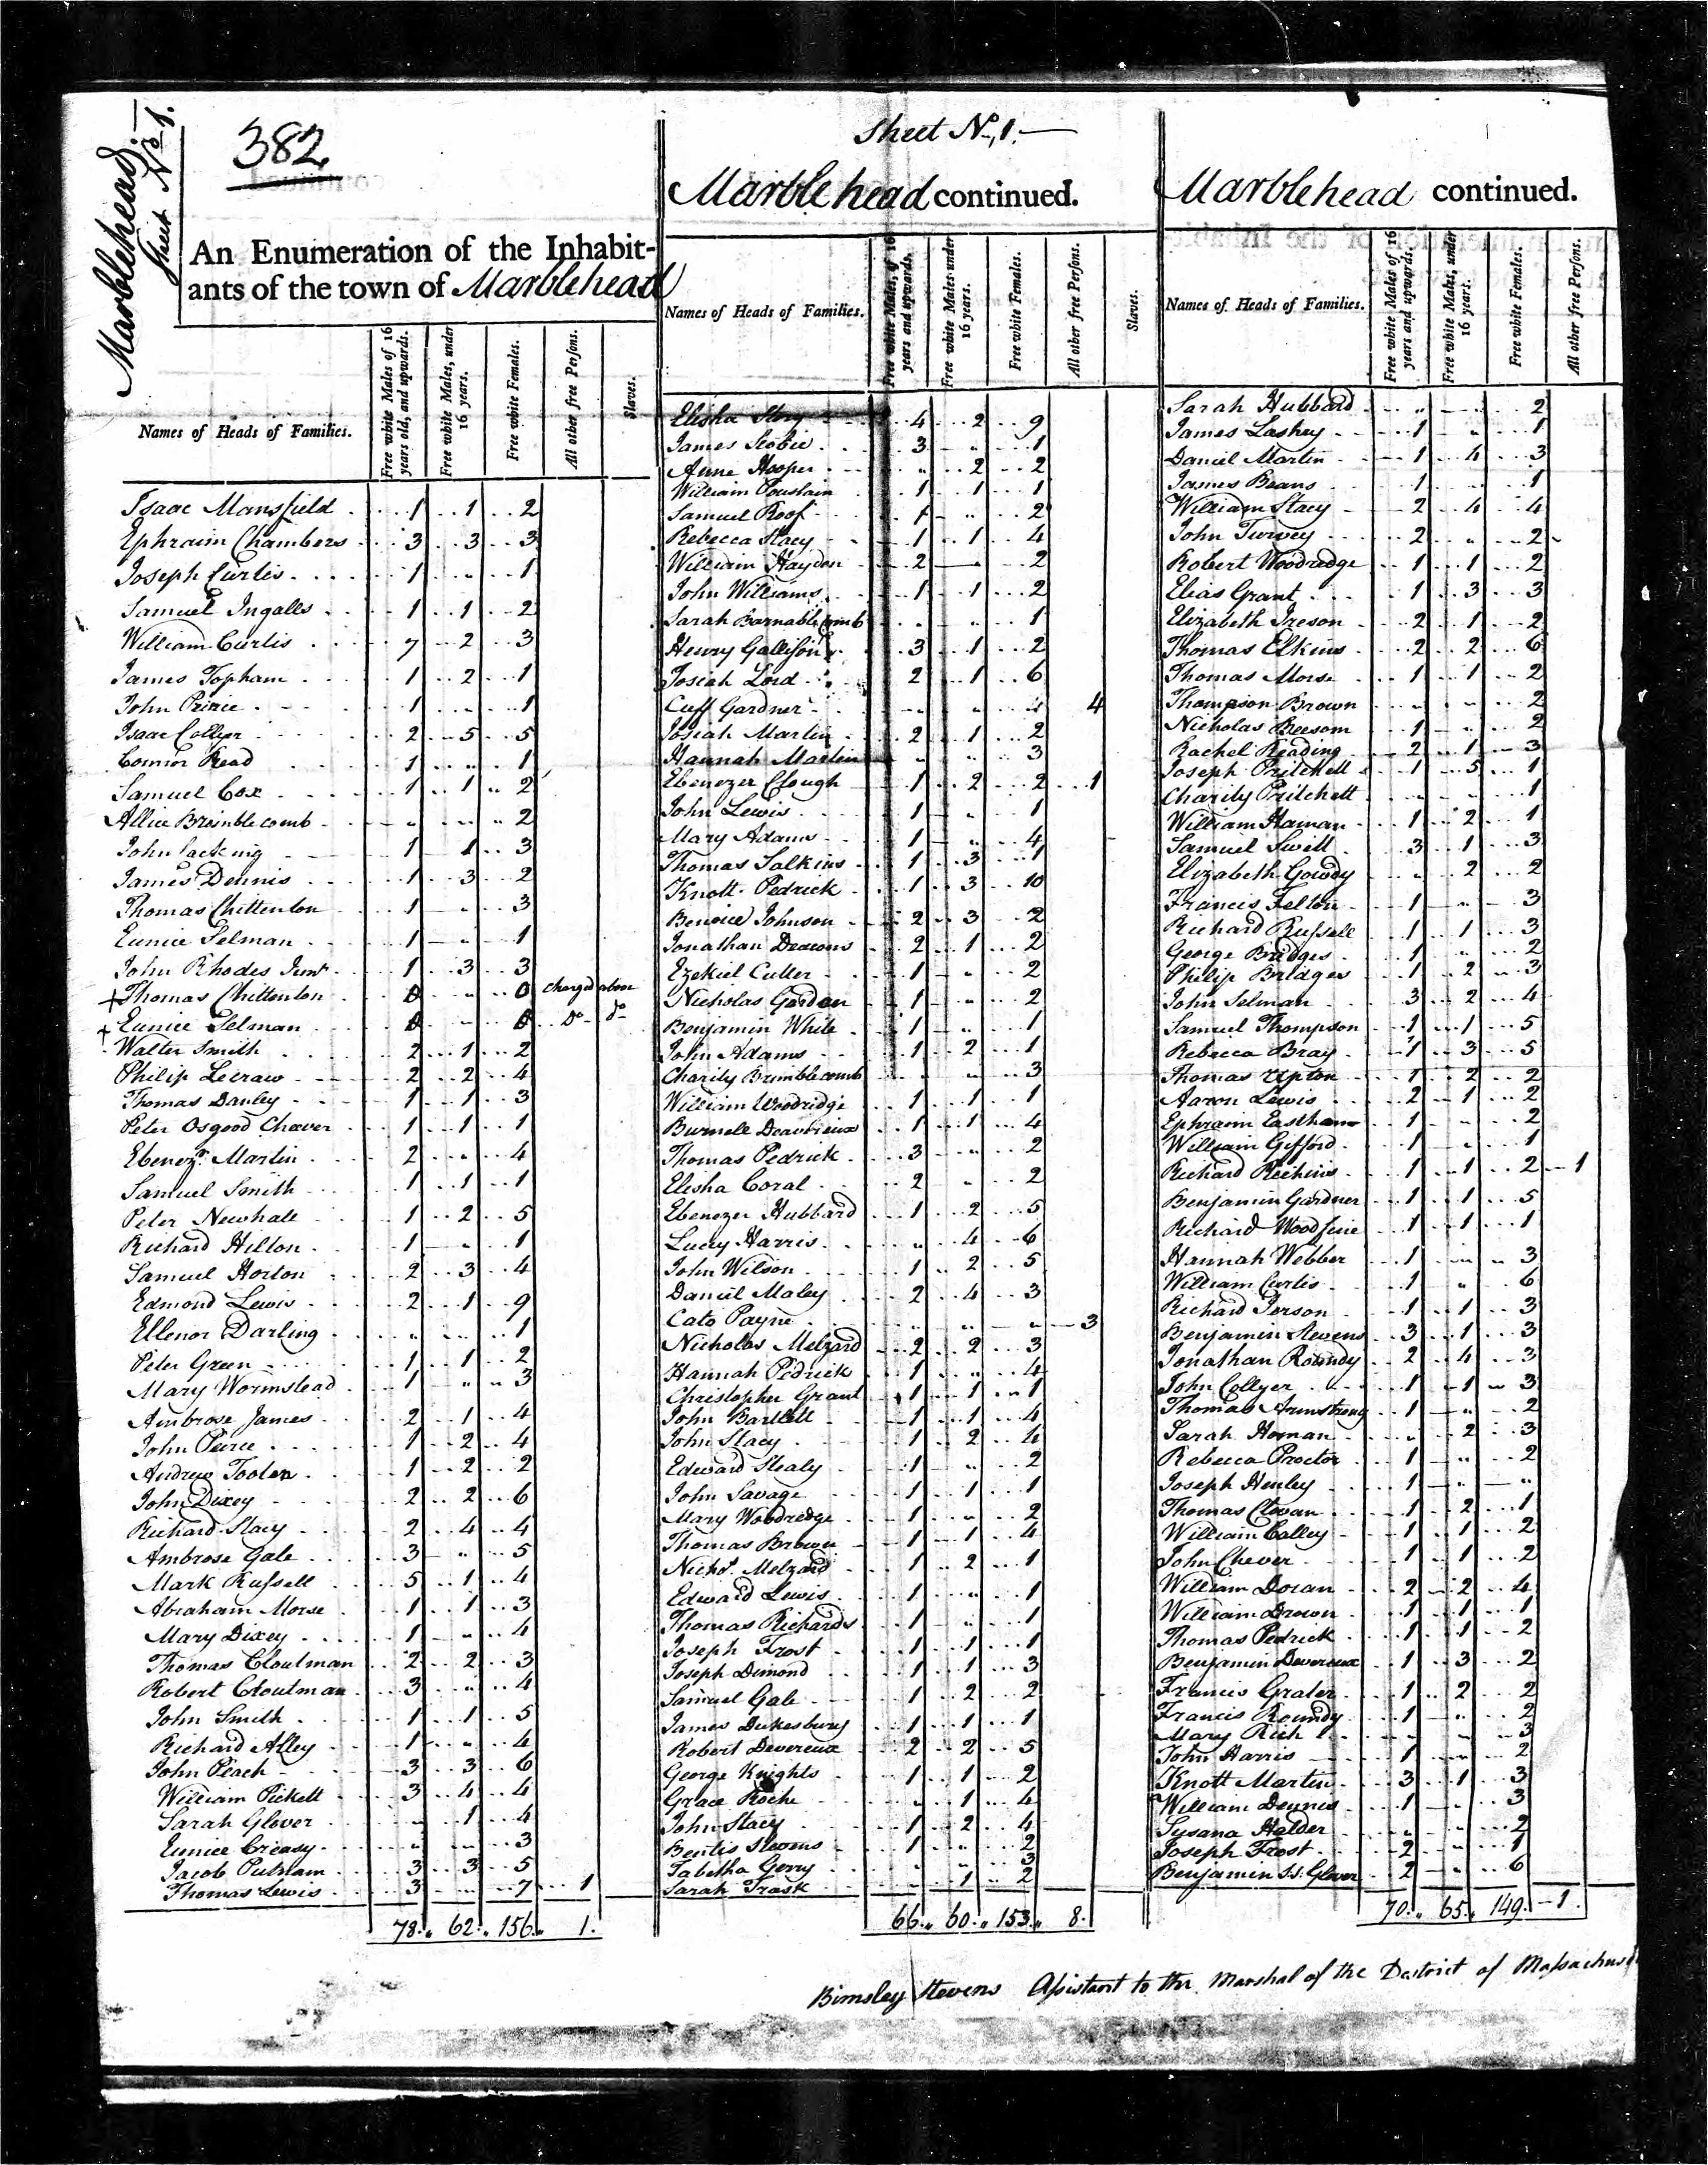 Marblehead
Sheet No 1.
382
An Enumeration of the Inhabit-
ants of the town of Marblehead
Names of Heads of Families. Free white Males of 16 years old, and upwards. Free white Males, under 16 years. Free white Females. All other free Persons. Slaves.
Isaac Mansfield 1 1 2
Ephraim Chambers 3 3 3
Joseph Curtis 1 " 1
Samuel Ingalls 1 1 2
William Curtis 7 2 3
James Topham 1 2 1
John Prince 1 " 1
Isaac Collyer 2 5 5
Connor Read 1 " 1
Samuel Cox 1 1 2
Allice Brimblecomb " " 2
John 1 1 3
James Dennis 1 3 2
Thomas Chittenton 1 " 3
Eunice Selman 1 " 1
John Rhodes Junr 1 3 3
+ Thomas Chittenton 0 " 0 charged above
+ Eunice Selman 0 " 0 Do do
Walter Smith 2 1 2
Philip Lecraw 2 2 4
Thomas Danley 1 1 3
Peter Osgood Chever 1 1 1
Ebenezr Martin 2 " 4
Samuel Smith 1 1 1
Peter Newhall 1 2 5
Richard Hilton 1 " 1
Samuel Horton 2 3 4
Edmond Lewis 2 1 9
Ellenor Darling " " 1
Peter Green 1 1 2
Mary Wormstead 1 " 3
Ambrose James 2 1 4
John Peirce 1 2 4
Andrew Tooten 1 2 2
John Dixey 2 2 6
Richard Stacy 2 4 4
Ambrose Gale 3 " 5
Mark Russell 5 1 4
Abraham Morse 1 1 3
Mary Dixey 1 " 4
Thomas Cloutman 2 2 3
Robert Cloutman 3 " 4
John Smith 1 1 5
Richard Alley 1 " 4
John Peach 3 3 6
William Pickett 3 4 4
Sarah Glover " 1 4
Eunice Creasy " " 3
Jacob Putnam 3 3 5
Thomas Lewis 3 7 1
78 62 156 1.
Sheet No, 1.
Marblehead continued.
Names of Heads of Families. Free white Males, of 16 years and upwards. Free white Males under 16 years. Free white Females. All other free Persons. Slaves.
Elisha Story 4 2 9
James Scobie 3 " 1
Anne Hooper " 2 2
William 1 1 1
Samuel Roof 1 " 2
Rebecca Stacy 1 1 4
William Haydon 2 — 2
John Williams 1 1 2
Sarah Barnablecomb " " 1
Henry Gallison 3 1 2
Josiah Lord 2 1 6
Cuff Gardner " " " 4
Josiah Martin 2 1 2
Hannah Martin " " 3
Ebenezer Clough 1 2 2 1
John Lewis 1 " 1
Mary Adams 1 " 4
Thomas Salkins 1 3 1
Knott Pedrick 1 3 10
Benoice Johnson 2 3 2
Jonathan Deacons 2 1 2
Ezekiel Cutler 1 " 2
Nicholas Gordan 1 " 2
Benjamin White 1 " 1
John Adams 1 2 1
Charity Brimblecomb " " 3
William Woodridge 1 1 1
Burnell Deavrieux 1 1 4
Thomas Pedrick 3 " 2
Elisha Coral 2 " 2
Ebenezer Hubbard 1 2 5
Lucey Harris " 4 6
John Wilson 1 2 5
Daniel Maley 2 4 3
Cato Payne " " " 3
Nicholas Melzard 2 2 3
Hannah Pedrick 1 " 4
Christopher Grant 1 1 1
John Bartlett 1 1 4
John Stacy 1 2 4
Edward Healy 1 " 2
John Savage 1 1 1
Mary Woodredge 1 " 2
Thomas Brown 1 1 4
Nichs. Melzard 1 2 1
Edward Lewis 1 " 1
Thomas Richards 1 " 1
Joseph Frost 1 1 1
Joseph Dimond 1 1 3
Samuel Gale 1 2 2
James Dukesbury 1 1 1
Robert Devereux 2 2 5
George Knights 1 1 2
Grace Roche " 1 4
John Stacy 1 2 4
Bentis Stevens 1 " 2
Tabetha Gerry " " 3
Sarah Trask " 1 2
66 60 153 8.
Marblehead continued.
Names of Heads of Families. Free white Males of 16 years and upwards. Free white Males, under 16 years. Free white Females. All other free Persons.
Sarah Hubbard " — 2
James Laskey 1 " 1
Daniel Martin 1 4 3
James Beans 1 " 1
William Stacy 2 4 4
John Turvey 2 " 2
Robert Woodredge 1 1 2
Elias Grant 1 3 3
Elizabeth Ireson 2 1 2
Thomas Elkins 2 2 6
Thomas Morse 1 1 2
Thompson Brown " " 2
Nicholas Beesom 1 " 2
Rachel Reading 2 1 3
Joseph Pritchett 1 5 1
Charity Pritchett " " 1
William Haman 1 2 1
Samuel Swett 3 1 3
Elizabeth Gowdy " 2 2
Francis Felton 1 — 3
Richard Russell 1 1 3
George Bridges 1 " 2
Philip Bridges 1 2 3
John Selman 3 2 4
Samuel Thompson 1 1 5
Rebecca Bray 1 3 5
Thomas Upton 1 2 2
Aaron Lewis 2 1 2
Ephraim Eastham 1 " 2
William Gifford 1 " 1
Richard 1 1 2 1
Benjamin Gardner 1 1 5
Richard Woodfine 1 1 1
Hannah Webber 1 " 3
William Curtis 1 " 6
Richard Ierson 1 1 3
Benjamin Stevens 3 1 3
Jonathan Roundy 2 4 3
John Collyer 1 1 3
Thomas Armstrong 1 " 2
Sarah Homan " 2 3
Rebecca Proctor 1 " 2
Joseph Henley 1 — "
Thomas Clowan 1 2 1
William Calley 1 1 2
John Chever 1 1 2
William Doran 2 2 4
William Drown 1 1 1
Thomas Pedrick 1 1 2
Benjamin Devereux 1 3 2
Francis Grater 1 2 2
Francis Roundy 1 " 2
Mary Rich " " 3
John Harris 1 " 2
Knott Martin 3 1 3
William Dennis 1 " 3
Susana Halder " " 2
Joseph Frost 2 " 1
Benjamin Glover 2 — 6
70 65 149 1.
Bimsley Stevens Assistant to the Marshal of the District of Massachus